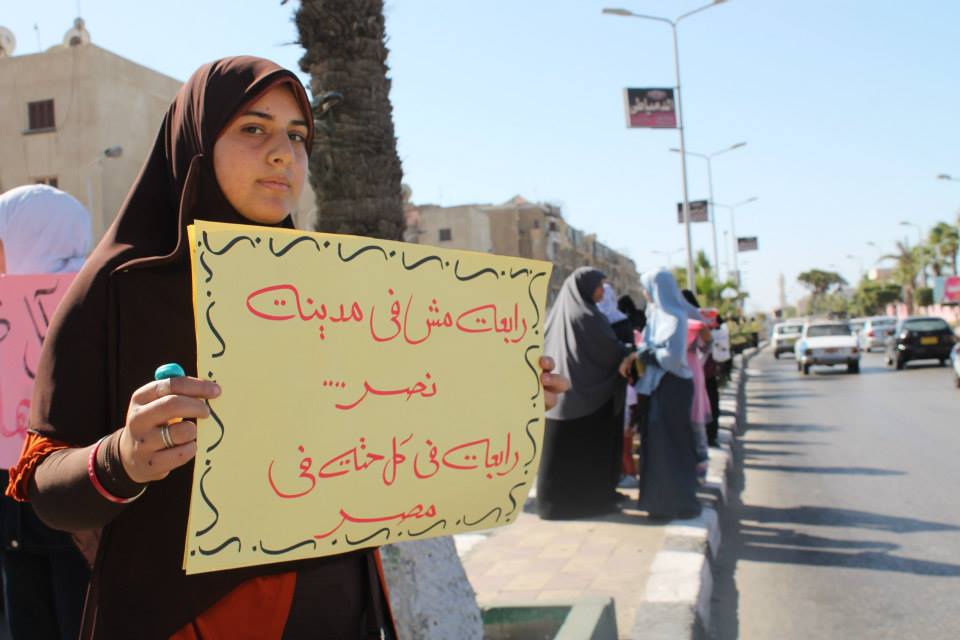 رابعة مش في مدينة
نصر....
رابعة في كل حتة في
مصر